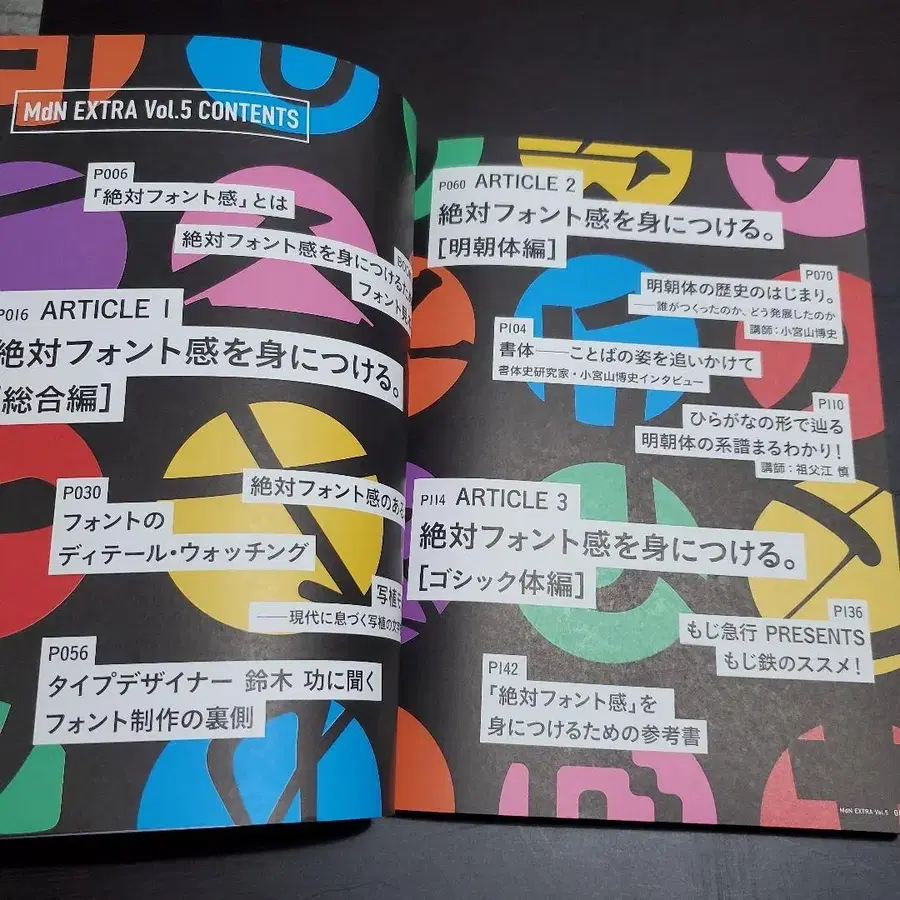 MdN EXTRA Vol.5 CONTENTS
P006
「絶対フォント感」とは
絶対フォント感を身につけるため
フォント見
P016 ARTICLE 1
絶対フォント感を身につける。
[総合編]
絶対フォント感のある
P030
フォントの
ディテール・ウォッチング
写植
——現代に息づく写植の文字
P056
タイプデザイナー 鈴木 功に聞く
フォント制作の裏側
P060 ARTICLE 2
絶対フォント感を身につける。
[明朝体編]
P070
明朝体の歴史のはじまり。
——誰がつくったのか、どう発展したのか
講師:小宮山博史
P104
書体——ことばの姿を追いかけて
書体史研究家・小宮山博史インタビュー
P110
ひらがなの形で辿る
明朝体の系譜まるわかり!
講師:祖父江 慎
P114 ARTICLE 3
絶対フォント感を身につける。
[ゴシック体編]
P136
もじ急行 PRESENTS
もじ鉄のススメ!
P142
「絶対フォント感」を
身につけるための参考書
MdN EXTRA Vol.5